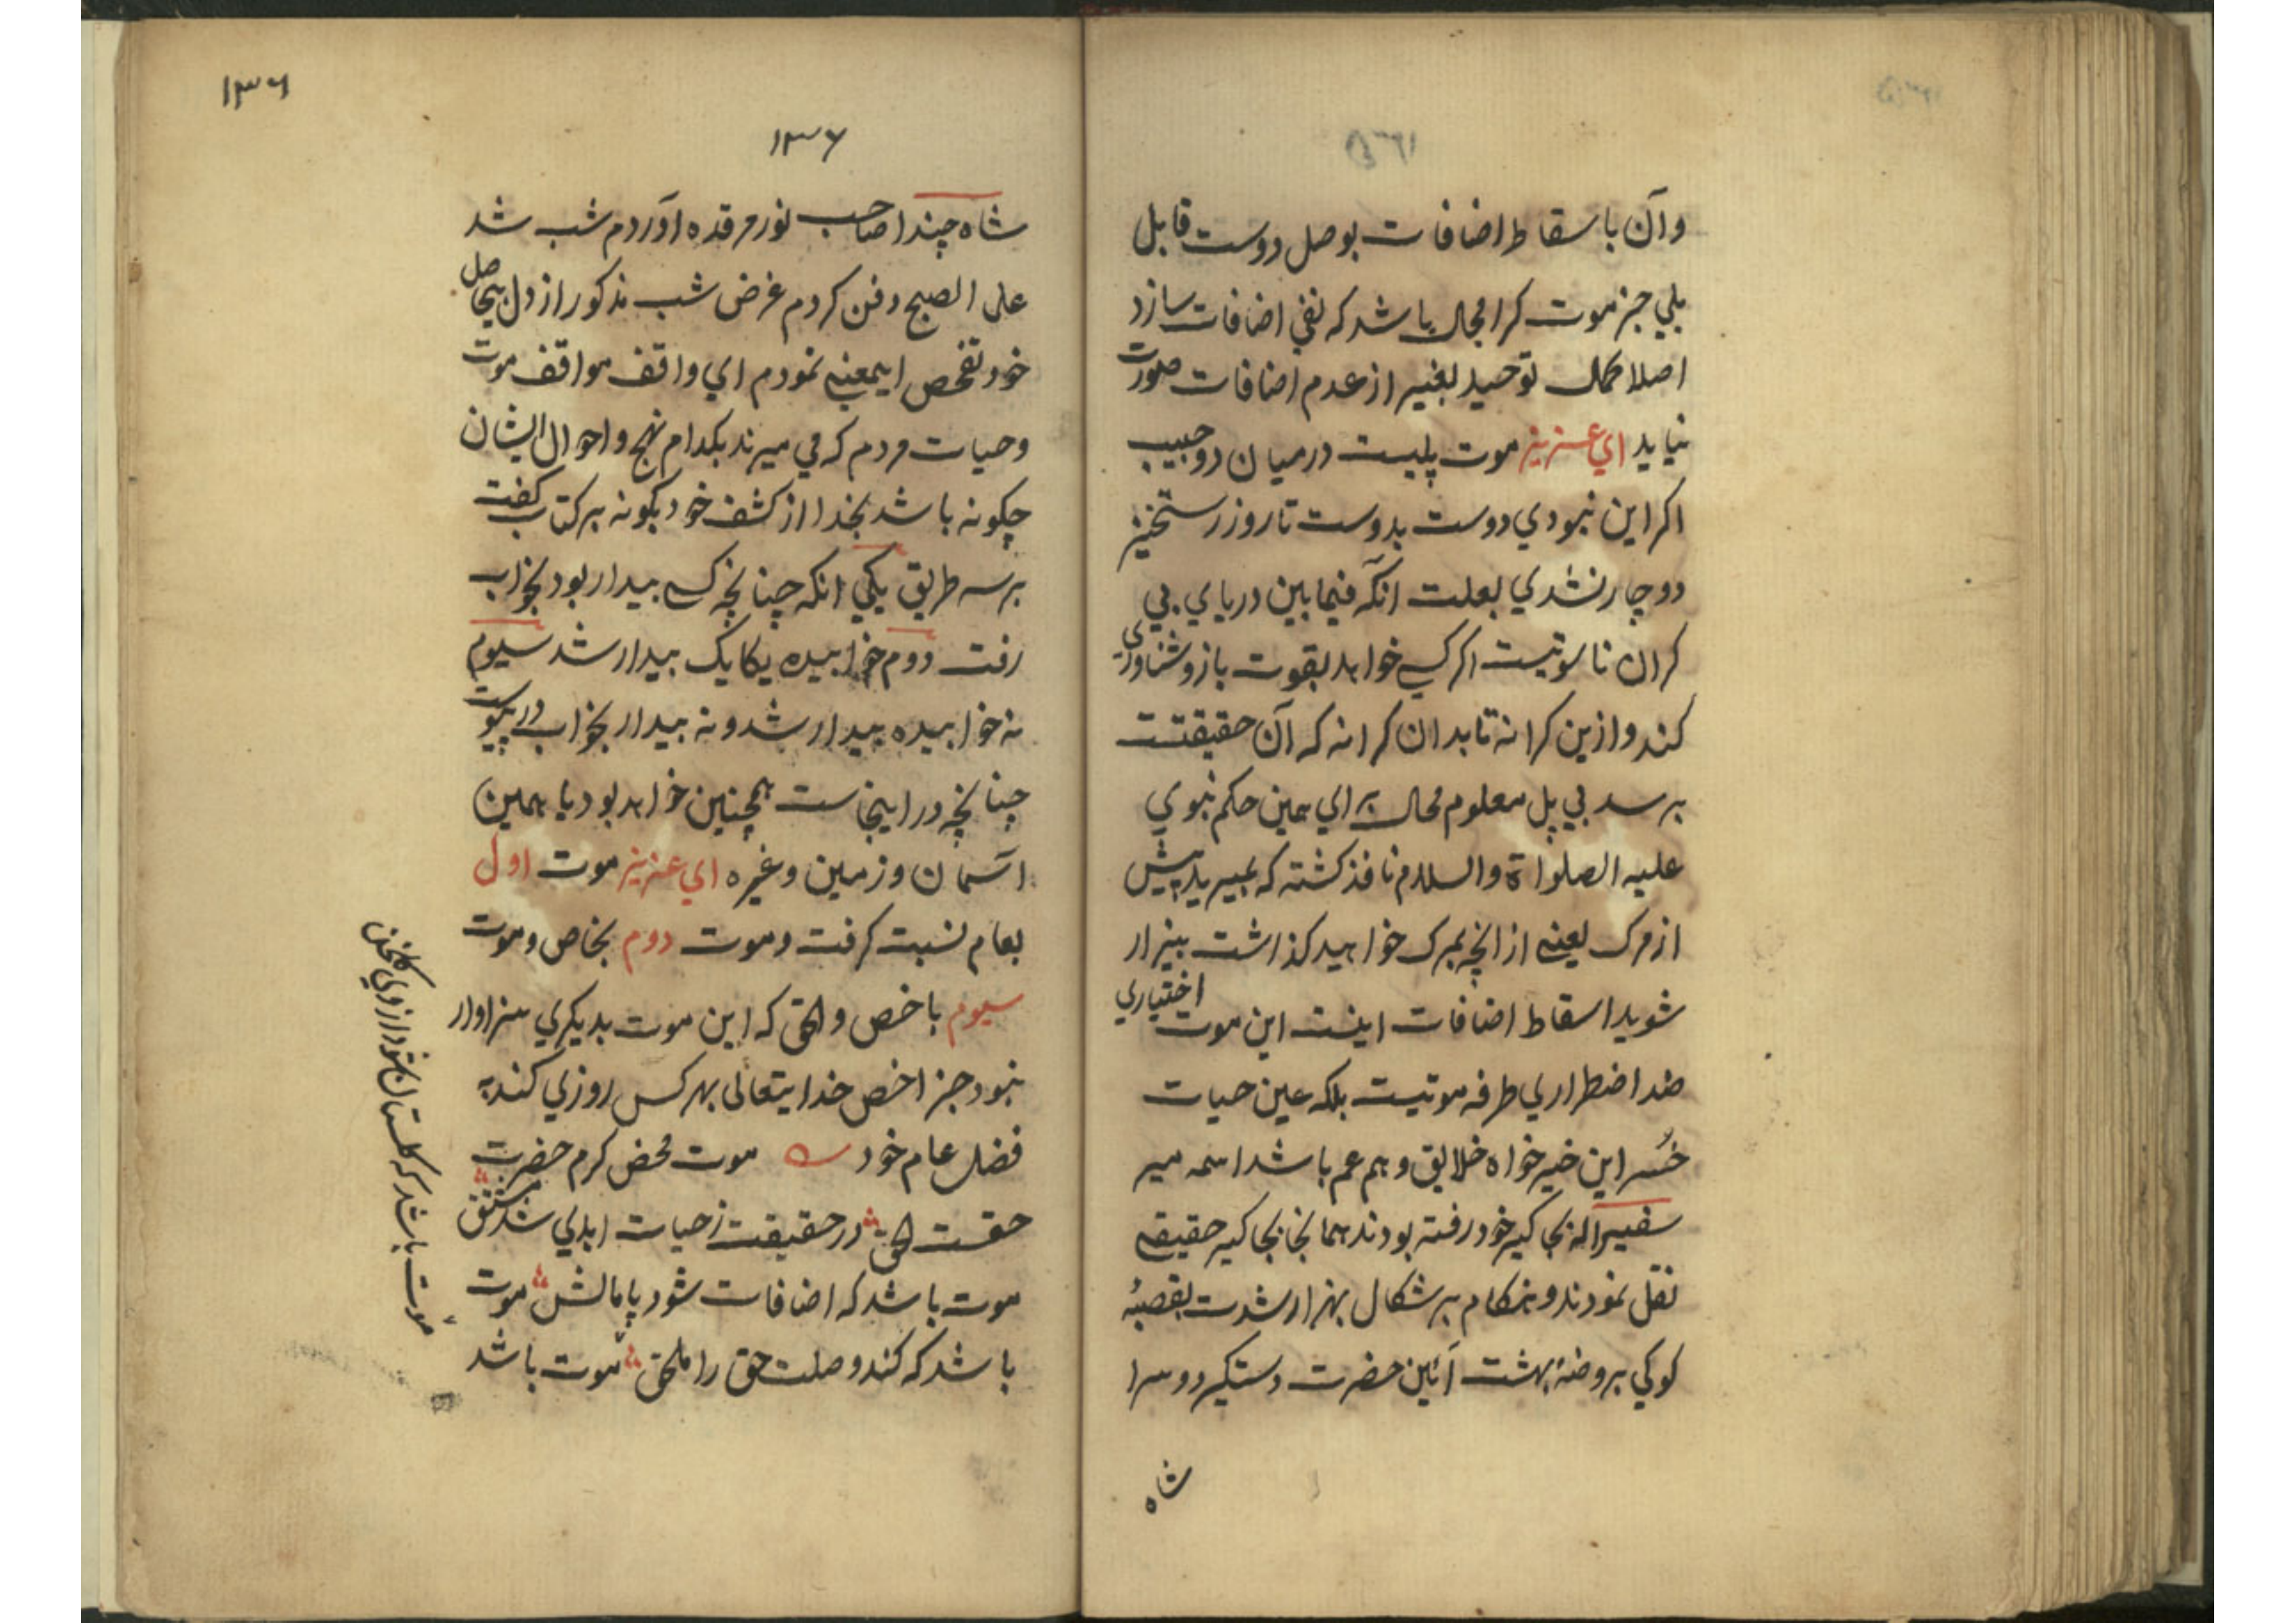 وآن باسقاط اضافات بوصل دوست قابل
بلي جز موت كرا مجال باشد كه نفي اضافات سازد
اصلا كمال توحيد بغير از عدم اضافات صورت
نيايد اي عزيز موت پليست درميان دو حبيب
اكر اين نبودي دوست بدوست تا روز رستخيز
دوچار نشدي بعلت آنكه فيمابين درياي بي
كران ناسوتيست اكر كسي خواهد بقوت بازو شناوري
كند و ازين كرانه تا بدان كرانه كه آن حقيقتست
برسد بي پل معلوم محال براي همين حكم نبوي
عليه الصلواة والسلام نافذ كشته كه بميريد پيش
از مرك يعني از انچه بمرك خواهيد كذاشت بيزار
شويد اسقاط اضافات اينست اين موت اختياري
ضد اضطراري طرفه موتيست بلكه عين حيات
خسر اين خيرخواه خلايق و هم عم باشد اسمه مير
سفير اله بجاكير خود رفته بودند همانجا بجاكير حقيقي
نقل نمودند و هنكام برشكال بهزار شدت بقصبهٔ
كوكي بروضهٔ بهشت آئين حضرت دستكير دوسرا
شاه
١٣٦
١٣٦
شاه چندا صاحب نور مرقده اوردم شب شد
علي الصبح دفن كردم غرض شب مذكور از دل بيحاصل
خود تفحص اينمعني نمودم اي واقف مواقف موت
وحيات مردم كه مي ميرند بكدام نهج و احوال ايشان
چكونه باشد بخدا از كشف خود بكو نه بر كتاب كفت
بر سه طريق يكي انكه چنانچه كسي بيدار بود بخواب
رفت دوم خوابيده يكايك بيدار شد سيوم
نه خوابيده بيدار شد و نه بيدار بخواب در پيوست
چنانچه در اينجاست همچنين خواهد بود يا همين
آسمان و زمين وغيره اي عزيز موت اول
بعام نسبت كرفت و موت دوم بخاص و موت
سيوم باخص والحق كه اين موت بديكري سزاوار
نبود جز اخص خدايتعالى بهر كس روزي كند به
فضل عام خود موت محض كرم حضرت
حقست الحق در حقيقت ز حيات ابدي شد مشتق
موت باشد كه اضافات شود پامالش موت
باشد كه كند وصلت حق را ملحق موت باشد
موت باشد كه كلستان شود از وي كلخن